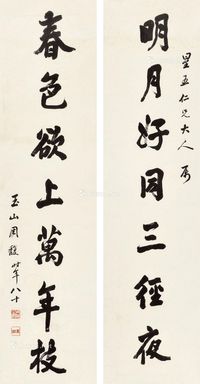 星五仁兄大人属
明月好同三徑夜
春色欲上萬年枝
玉山周馥時年八十